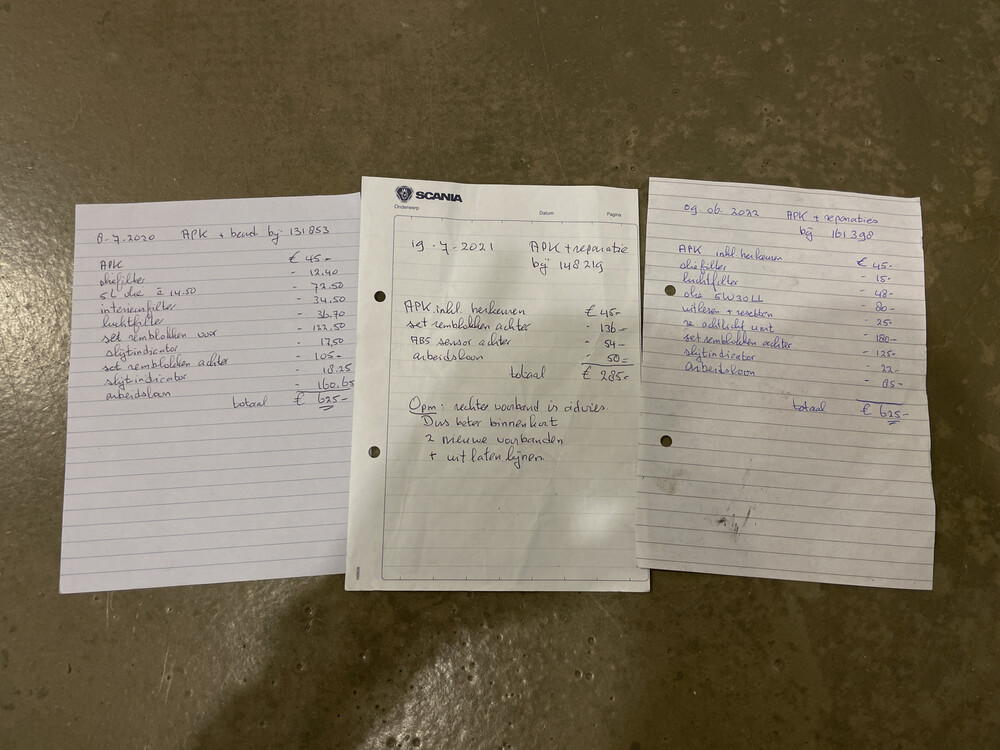 8-7-2020 APK + beurt bij 131853
APK € 45.-
oliefilter - 12.40
5L olie à 14.50 - 72.50
interieurfilter - 34.50
luchtfilter - 36.70
set remblokken voor - 122.50
slijtindicator - 17.50
set remblokken achter - 105.-
slijtindicator - 18.25
arbeidsloon - 160.65
totaal € 625.-
SCANIA
Onderwerp Datum Pagina
19-7-2021 APK + reparatie
bij 148219
APK inkl herkeuren € 45-
set remblokken achter - 136-
ABS sensor achter - 54-
arbeidsloon - 50-
totaal € 285-
Opm: rechter voorband is advies.
Dus beter binnenkort
2 nieuwe voorbanden
+ uit laten lijnen.
09-06-2022 APK + reparaties
bij 161398
APK inkl herkeuren € 45-
oliefilter - 15-
luchtfilter - 48-
olie 5W30LL - 80-
uitlezen + resetten - 25-
re achtlicht unit - 180-
set remblokken achter - 125-
slijtindicator - 22-
arbeidsloon - 85-
totaal € 625-